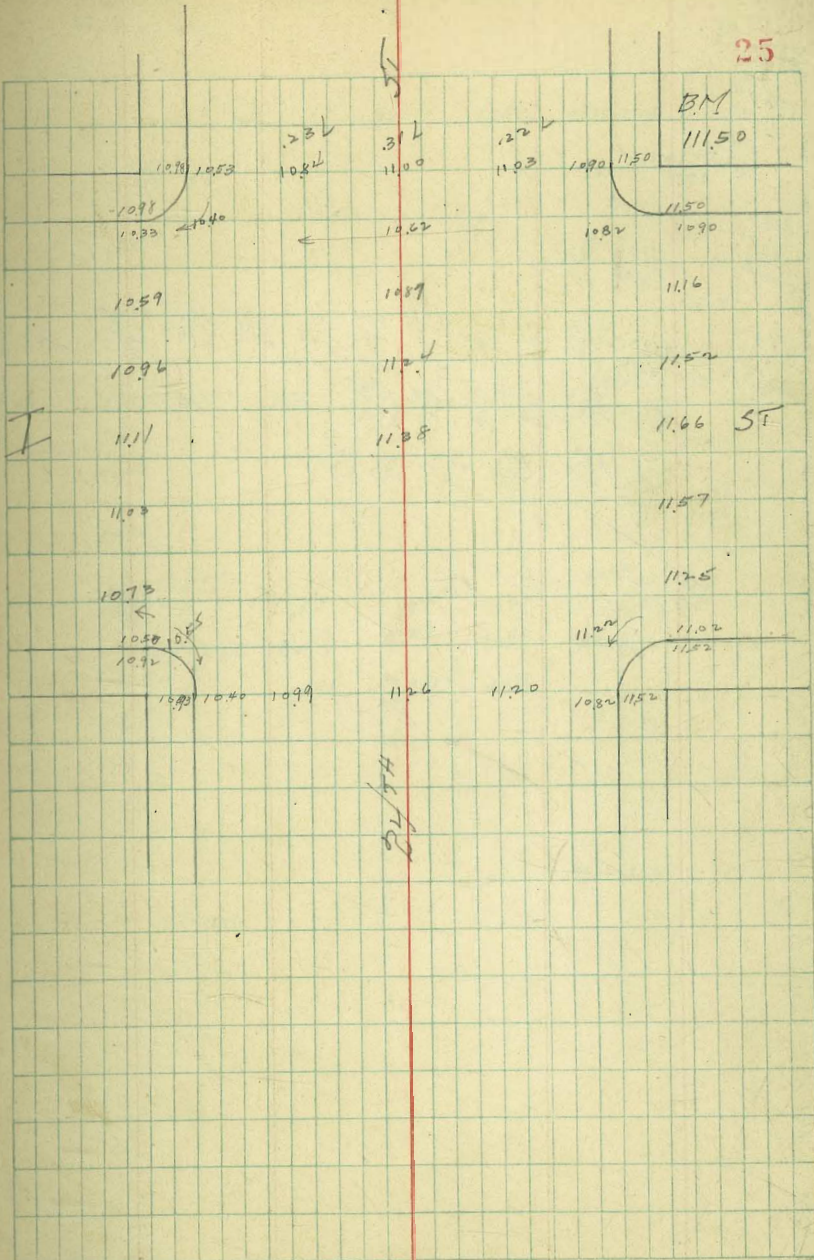 25
ST
BM
.23L .31L .22L 111.50
10.98 10.53 10.82 11.00 11.03 10.90 11.50
10.98 11.50
10.33 10.40 10.62 10.82 10.90
10.59 10.89 11.16
10.96 11.52
I 11.11 11.38 11.66 ST
11.03 11.57
10.73 11.25
10.50 11.22 11.02
10.92 11.52
10.93 10.40 10.99 11.26 11.20 10.82 11.52
24TH